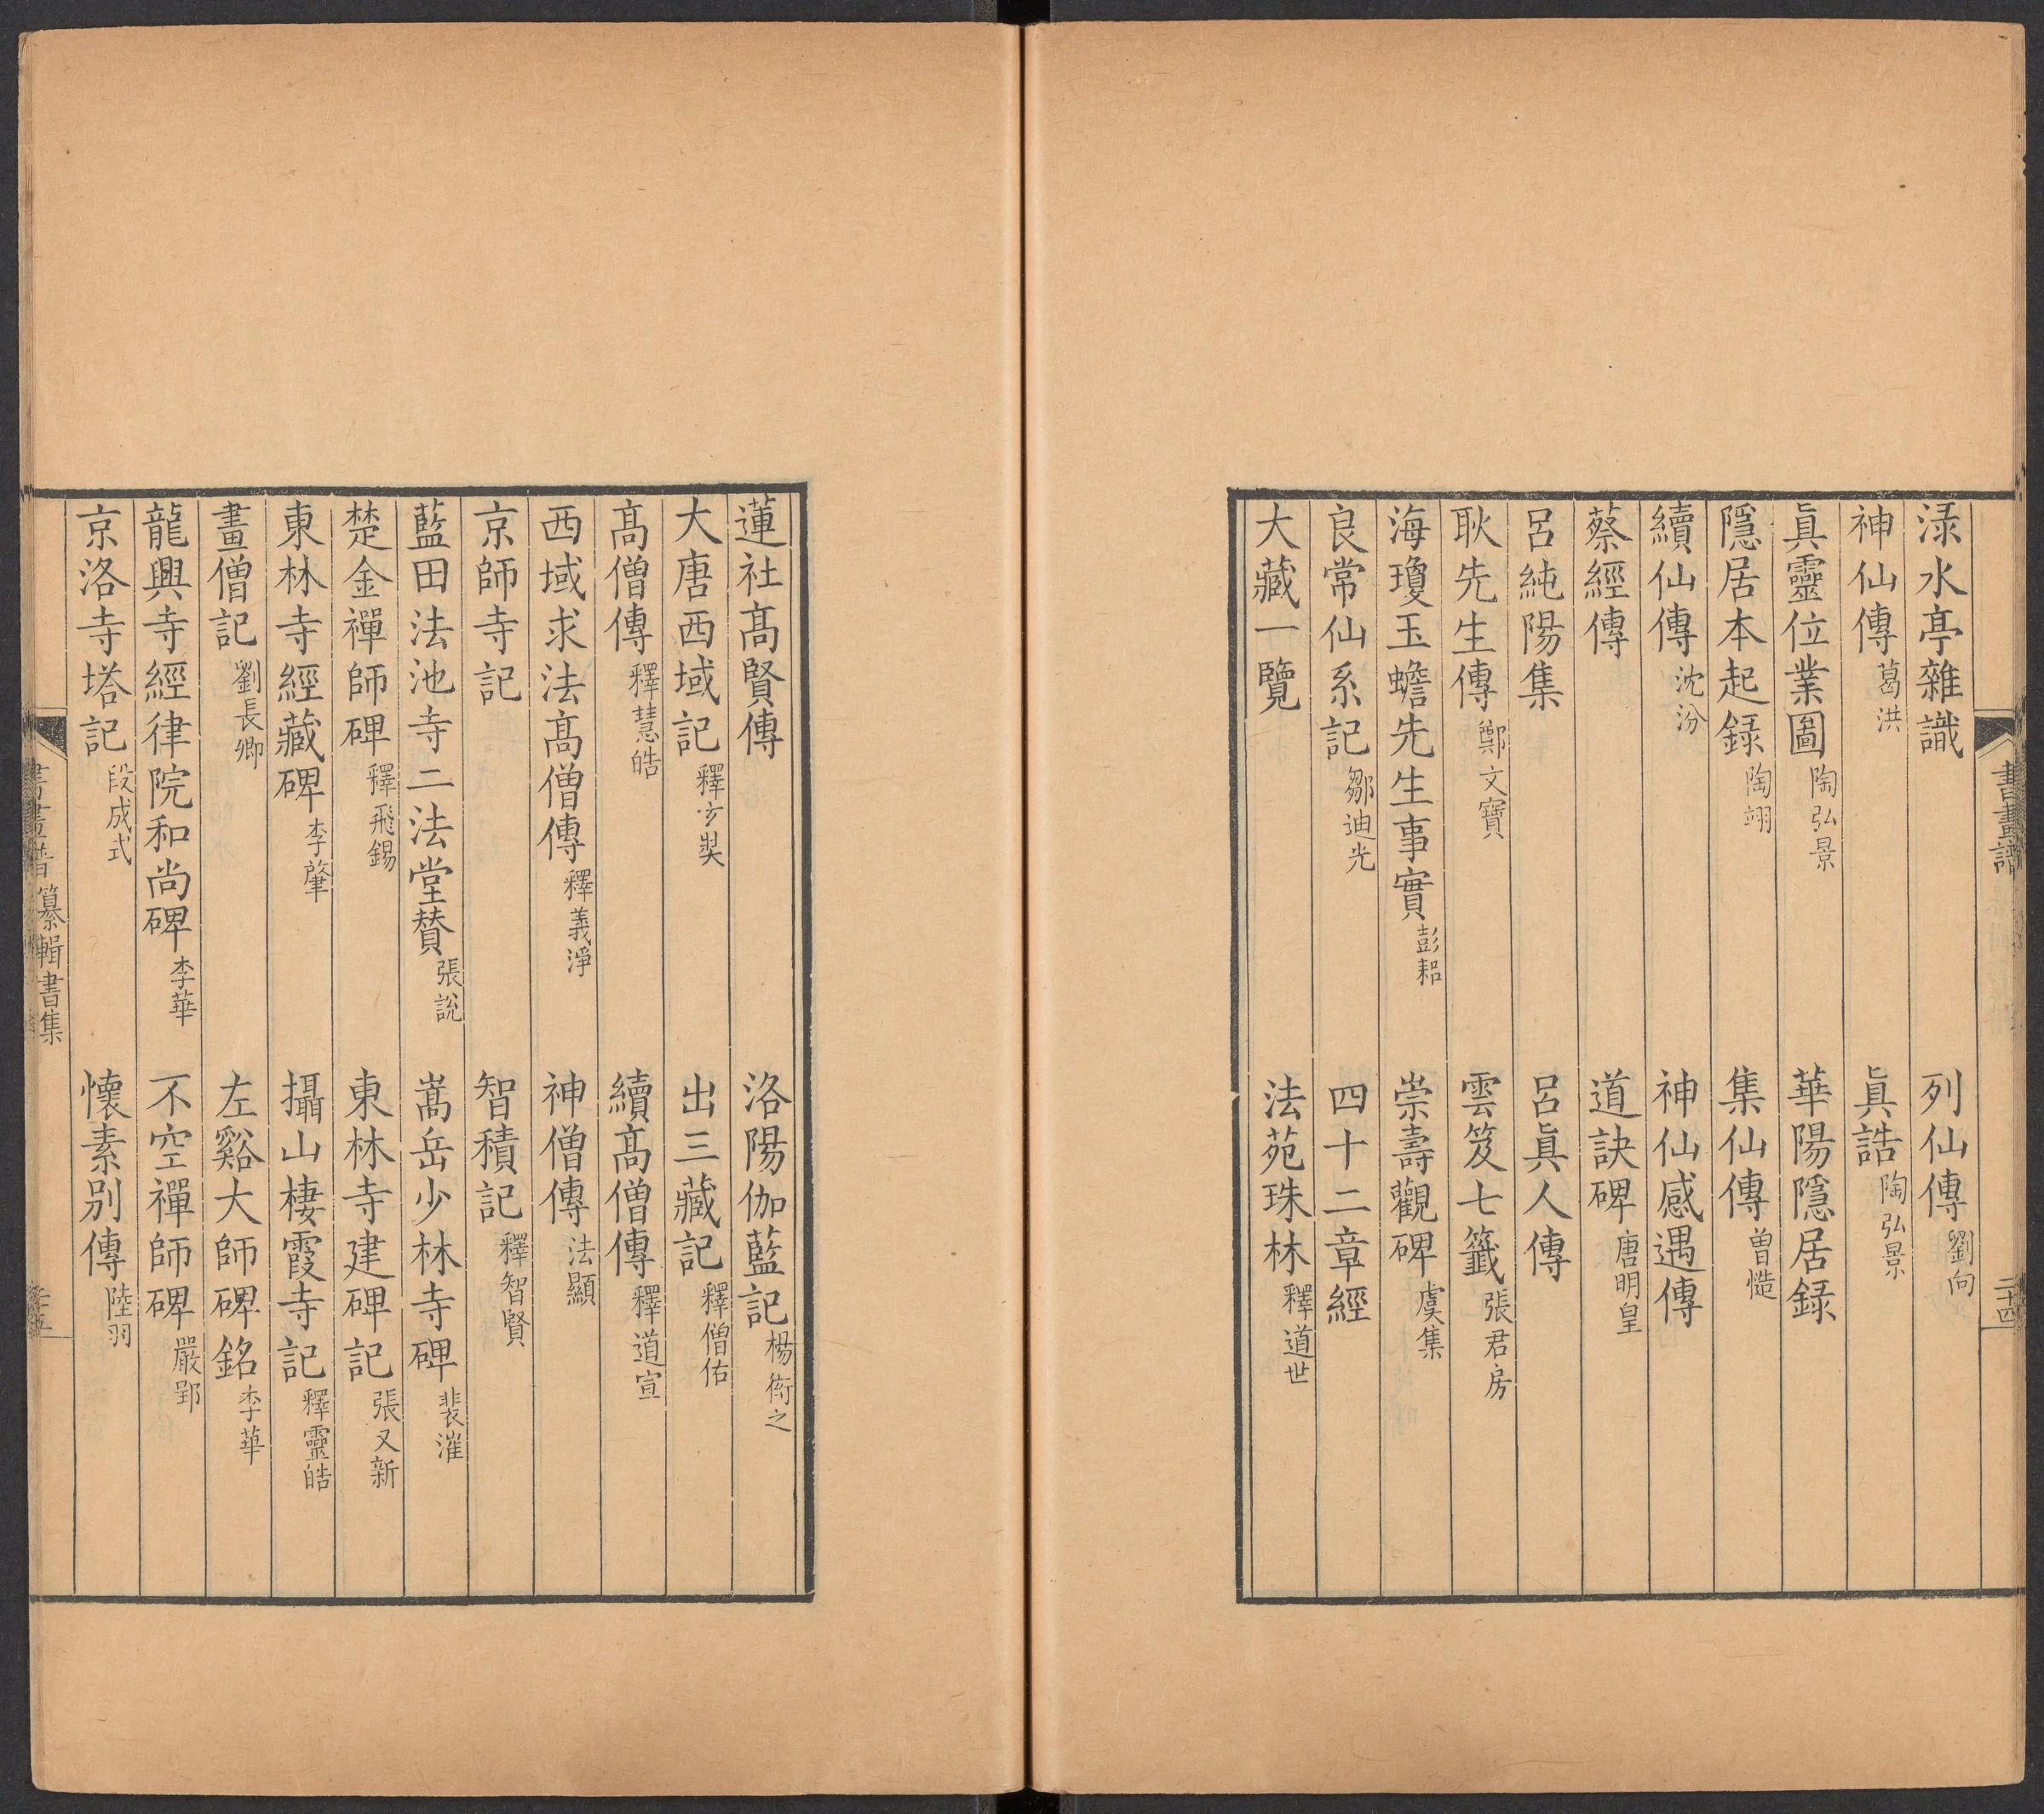 渌水亭雜識　列仙傳劉向
神仙傳葛洪　眞誥陶弘景
眞靈位業圖陶弘景　華陽隱居録
隱居本起録陶翊　集仙傳曾慥
續仙傳沈汾　神仙感遇傳
蔡經傳　道訣碑唐明皇
呂純陽集　呂眞人傳
耿先生傳鄭文寶　雲笈七籤張君房
海瓊玉蟾先生事實彭耜　崇壽觀碑虞集
良常仙系記鄒迪光　四十二章經
大藏一覽　法苑珠林釋道世
書畫譜
二十四
蓮社髙賢傳　洛陽伽藍記楊衒之
大唐西域記釋玄奘　出三藏記釋僧佑
髙僧傳釋慧皓　續髙僧傳釋道宣
西域求法髙僧傳釋義淨　神僧傳法顯
京師寺記　智積記釋智賢
藍田法池寺二法堂賛張說　嵩岳少林寺碑裴漼
楚金禪師碑釋飛錫　東林寺建碑記張又新
東林寺經藏碑李肇　攝山棲霞寺記釋靈皓
畫僧記劉長卿　左谿大師碑銘李華
龍興寺經律院和尚碑李華　不空禪師碑嚴郢
京洛寺塔記段成式　懷素别傳陸羽
書畫譜纂輯書集